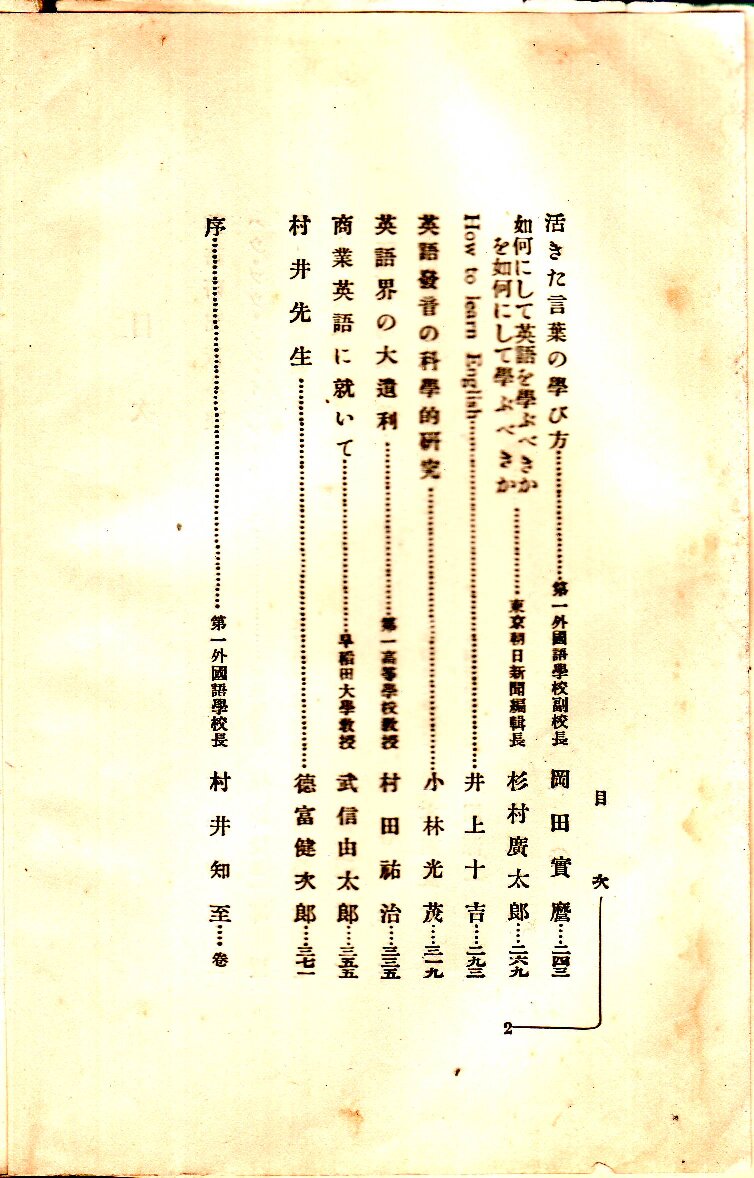 目次
活きた言葉の學び方……第一外國語學校副校長 岡田實麿……二四三
如何にして英語を學ぶべきか
を如何にして學ぶべきか……東京朝日新聞編輯長 杉村廣太郎……二六九
How to learn English……井上十吉……二九三
英語發音の科學的硏究……小林光茂……三一九
英語界の大遺利……第一高等學校敎授 村田祐治……三三五
商業英語に就いて……早稲田大學敎授 武信由太郎……三五五
村井先生……德富健次郎……三七一
序……第一外國語學校長 村井知至……卷
2